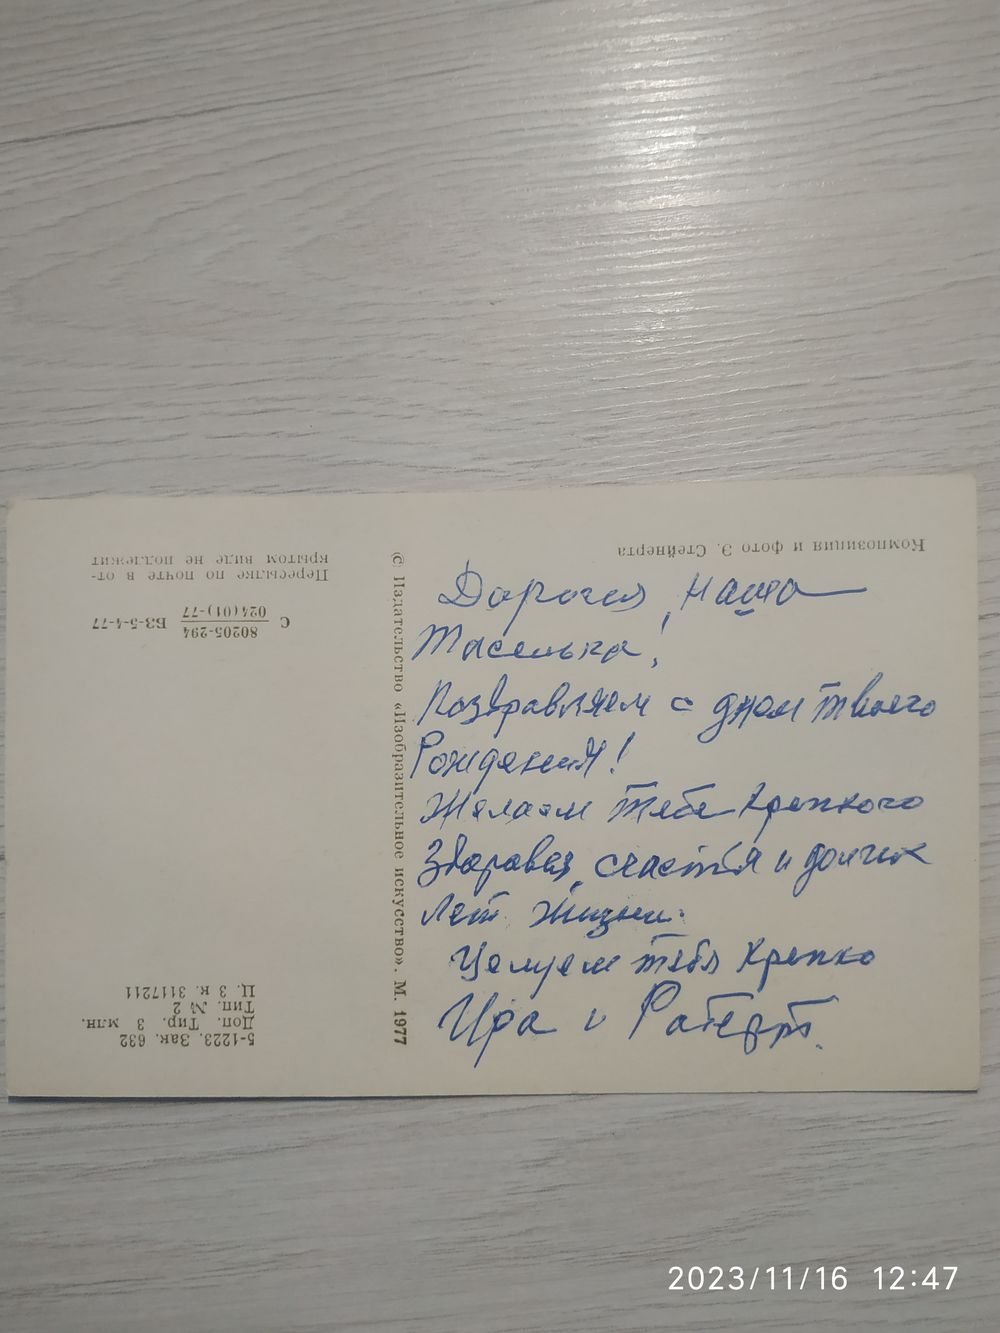 Дорогая, наша
Тасенька!
Поздравляем с днем твоего
Рождения!
Желаем тебе крепкого
Здоровья, счастья и долгих
лет жизни.
Целуем тебя крепко
Ира и Роберт.
Композиция и фото Э. Стейнерта
© Издательство «Изобразительное искусство». М. 1977
Пересылке по почте в от-
крытом виде не подлежит
С 80205-294 БЗ-5-4-77
024(01)-77
5-1223. Зак. 632
Доп. Тир. 3 млн.
Тип. № 2
Ц. 3 к. 3117211
2023/11/16 12:47